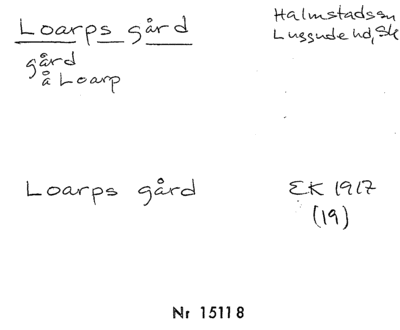 Loarps gård
Halmstads sn
Luggude hd, Sk
gård
å Loarp
Loarps gård
EK 1917
(19)
Nr 15118